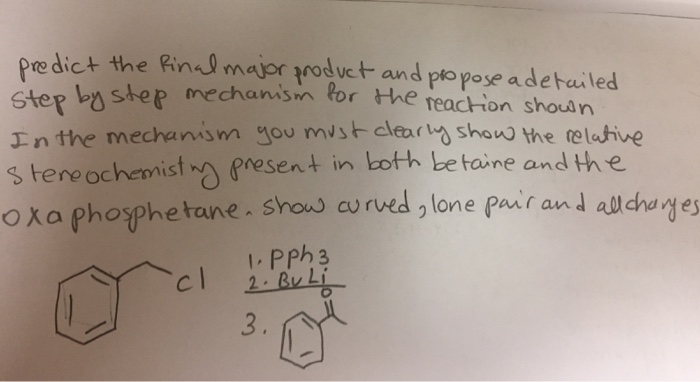 predict the final major product and propose a detailed
step by step mechanism for the reaction shown
In the mechanism you must clearly show the relative
stereochemistry present in both betaine and the
oxaphosphetane. show curved, lone pair and all charges
cl
1. pph3
2. BuLi
3.
O